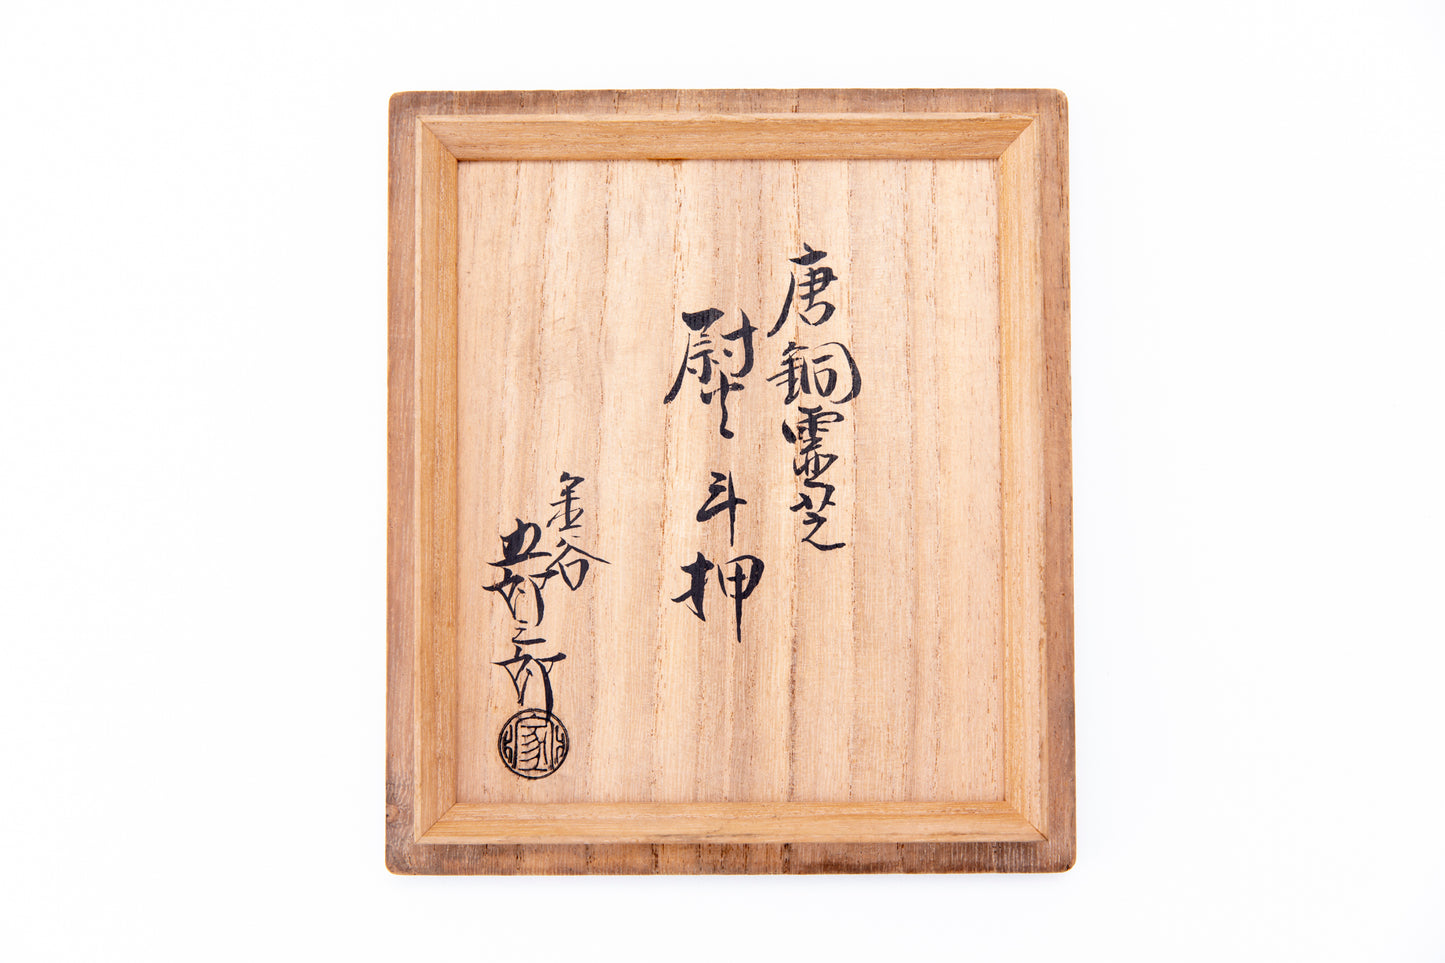 唐銅霊芝
熨斗押
金谷
五郎三郎